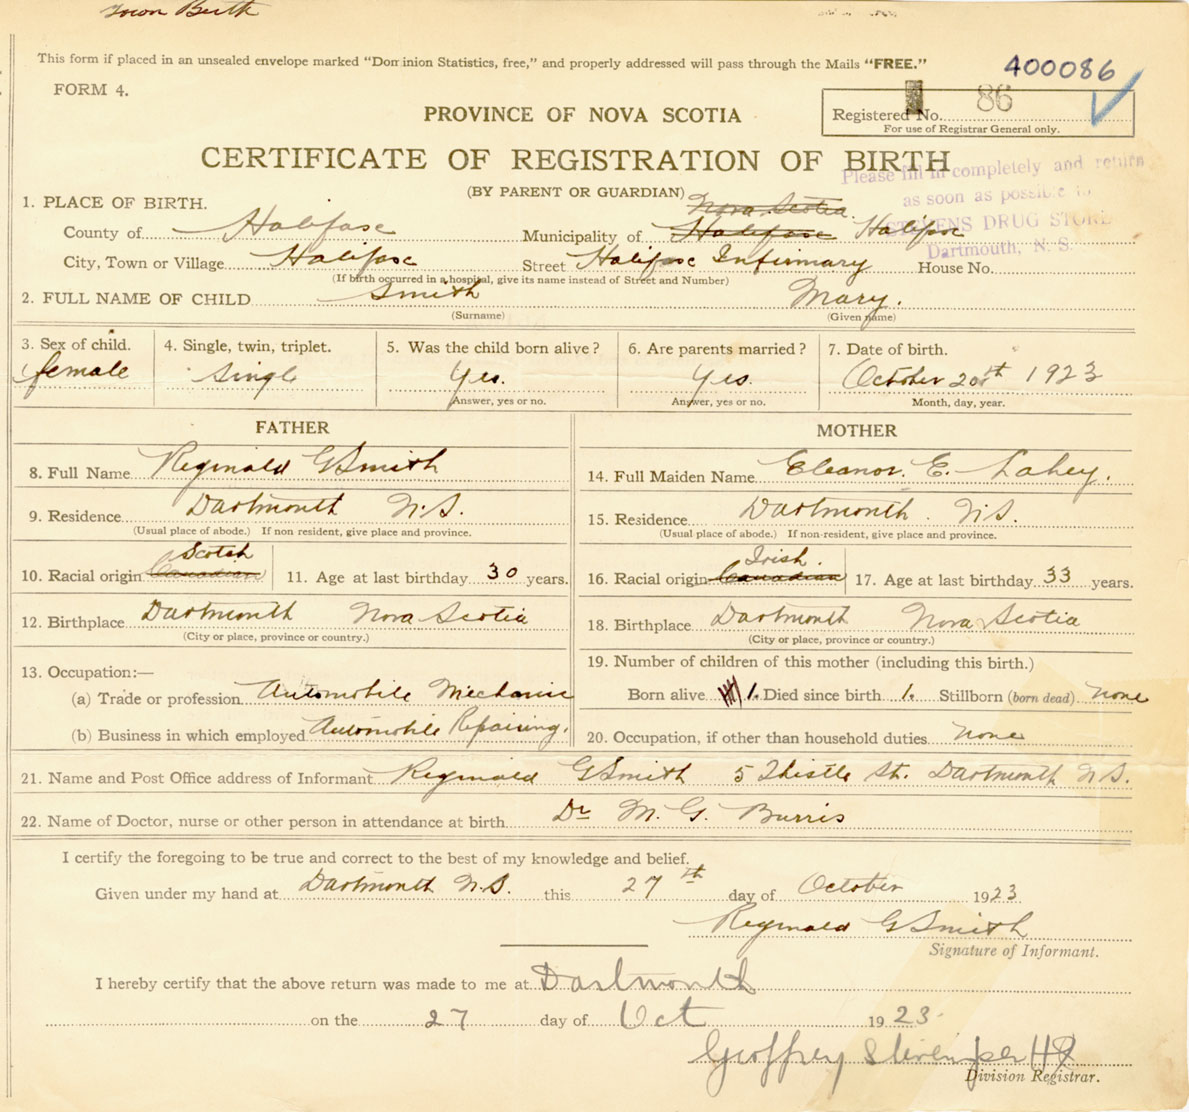 Town Birth
This form if placed in an unsealed envelope marked "Dominion Statistics, free," and properly addressed will pass through the Mails "FREE."
400086
FORM 4.
86
PROVINCE OF NOVA SCOTIA
Registered No.
For use of Registrar General only.
CERTIFICATE OF REGISTRATION OF BIRTH
Please fill in completely and return
as soon as possible to
STEVENS DRUG STORE
Dartmouth, N. S.
(BY PARENT OR GUARDIAN)
1. PLACE OF BIRTH.
Nova Scotia
County of Halifax Municipality of Halifax Halifax
City, Town or Village Halifax Street Halifax Infirmary House No.
(If birth occurred in a hospital, give its name instead of Street and Number)
2. FULL NAME OF CHILD Smith Mary.
(Surname) (Given name)
3. Sex of child. 4. Single, twin, triplet. 5. Was the child born alive? 6. Are parents married? 7. Date of birth.
female single Yes. Yes. October 20th 1923
Answer, yes or no. Answer, yes or no. Month, day, year.
FATHER MOTHER
8. Full Name Reginald G Smith
14. Full Maiden Name Eleanor. E. Lahey.
9. Residence Dartmouth N.S.
(Usual place of abode.) If non resident, give place and province.
15. Residence Dartmouth. N.S.
(Usual place of abode.) If non-resident, give place and province.
Scotch
10. Racial origin Canadian 11. Age at last birthday 30 years.
Irish.
16. Racial origin Canadian 17. Age at last birthday 33 years.
12. Birthplace Dartmouth Nova Scotia
(City or place, province or country.)
18. Birthplace Dartmouth Nova Scotia
(City or place, province or country.)
13. Occupation:—
(a) Trade or profession Automobile Mechanic
(b) Business in which employed Automobile Repairing.
19. Number of children of this mother (including this birth.)
Born alive 1. Died since birth 1. Stillborn (born dead) none
20. Occupation, if other than household duties none
21. Name and Post Office address of Informant Reginald G Smith 5 Thistle St. Dartmouth N.S.
22. Name of Doctor, nurse or other person in attendance at birth Dr M. G. Burris
I certify the foregoing to be true and correct to the best of my knowledge and belief.
Given under my hand at Dartmouth N.S. this 27th day of October 1923
Reginald G Smith
Signature of Informant.
I hereby certify that the above return was made to me at Dartmouth
on the 27 day of Oct 1923
Geoffrey Stevens
Division Registrar.